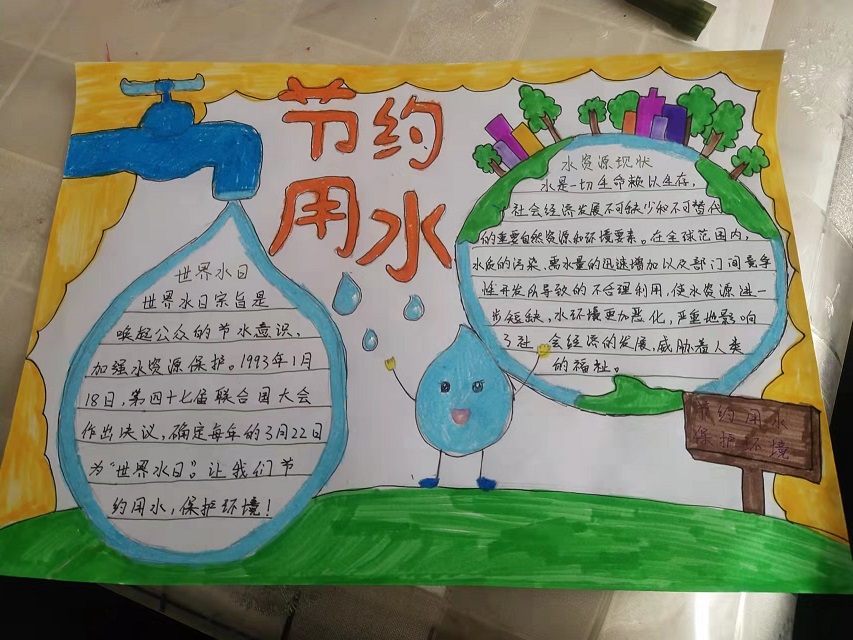 节约
用水
世界水日
世界水日宗旨是
唤起公众的节水意识，
加强水资源保护。1993年1月
18日，第四十七届联合国大会
作出决议，确定每年的3月22日
为"世界水日"。让我们节
约用水，保护环境！
水资源现状
水是一切生命赖以生存，
社会经济发展不可缺少和不可替代
的重要自然资源和环境要素。在全球范围内，
水质的污染，需水量的迅速增加以及部门间竞争
性开发所导致的不合理利用，使水资源进一
步短缺，水环境更加恶化，严重地影响
了社会经济的发展，威胁着人类
的福祉。
节约用水
保护环境